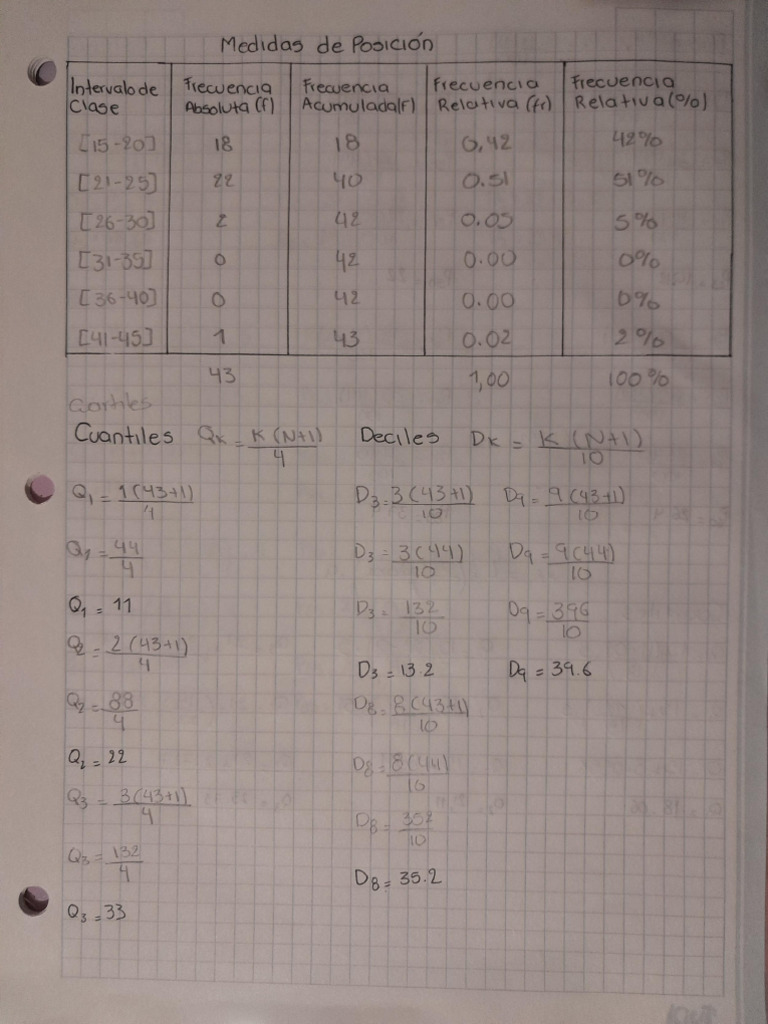 Medidas de Posición
Intervalo de Clase | Frecuencia Absoluta (f) | Frecuencia Acumulada (F) | Frecuencia Relativa (fr) | Frecuencia Relativa (%)
[15-20] | 18 | 18 | 0,42 | 42%
[21-25] | 22 | 40 | 0.51 | 51%
[26-30] | 2 | 42 | 0.05 | 5%
[31-35] | 0 | 42 | 0.00 | 0%
[36-40] | 0 | 42 | 0.00 | 0%
[41-45] | 1 | 43 | 0.02 | 2%
43 1,00 100%
Cuantiles Qk = K(N+1)/4
Q1 = 1(43+1)/4
Q1 = 44/4
Q1 = 11
Q2 = 2(43+1)/4
Q2 = 88/4
Q2 = 22
Q3 = 3(43+1)/4
Q3 = 132/4
Q3 = 33
Deciles Dk = K(N+1)/10
D3 = 3(43+1)/10
D3 = 3(44)/10
D3 = 132/10
D3 = 13.2
D8 = 8(43+1)/10
D8 = 8(44)/10
D8 = 352/10
D8 = 35.2
D9 = 9(43+1)/10
D9 = 9(44)/10
D9 = 396/10
D9 = 39.6